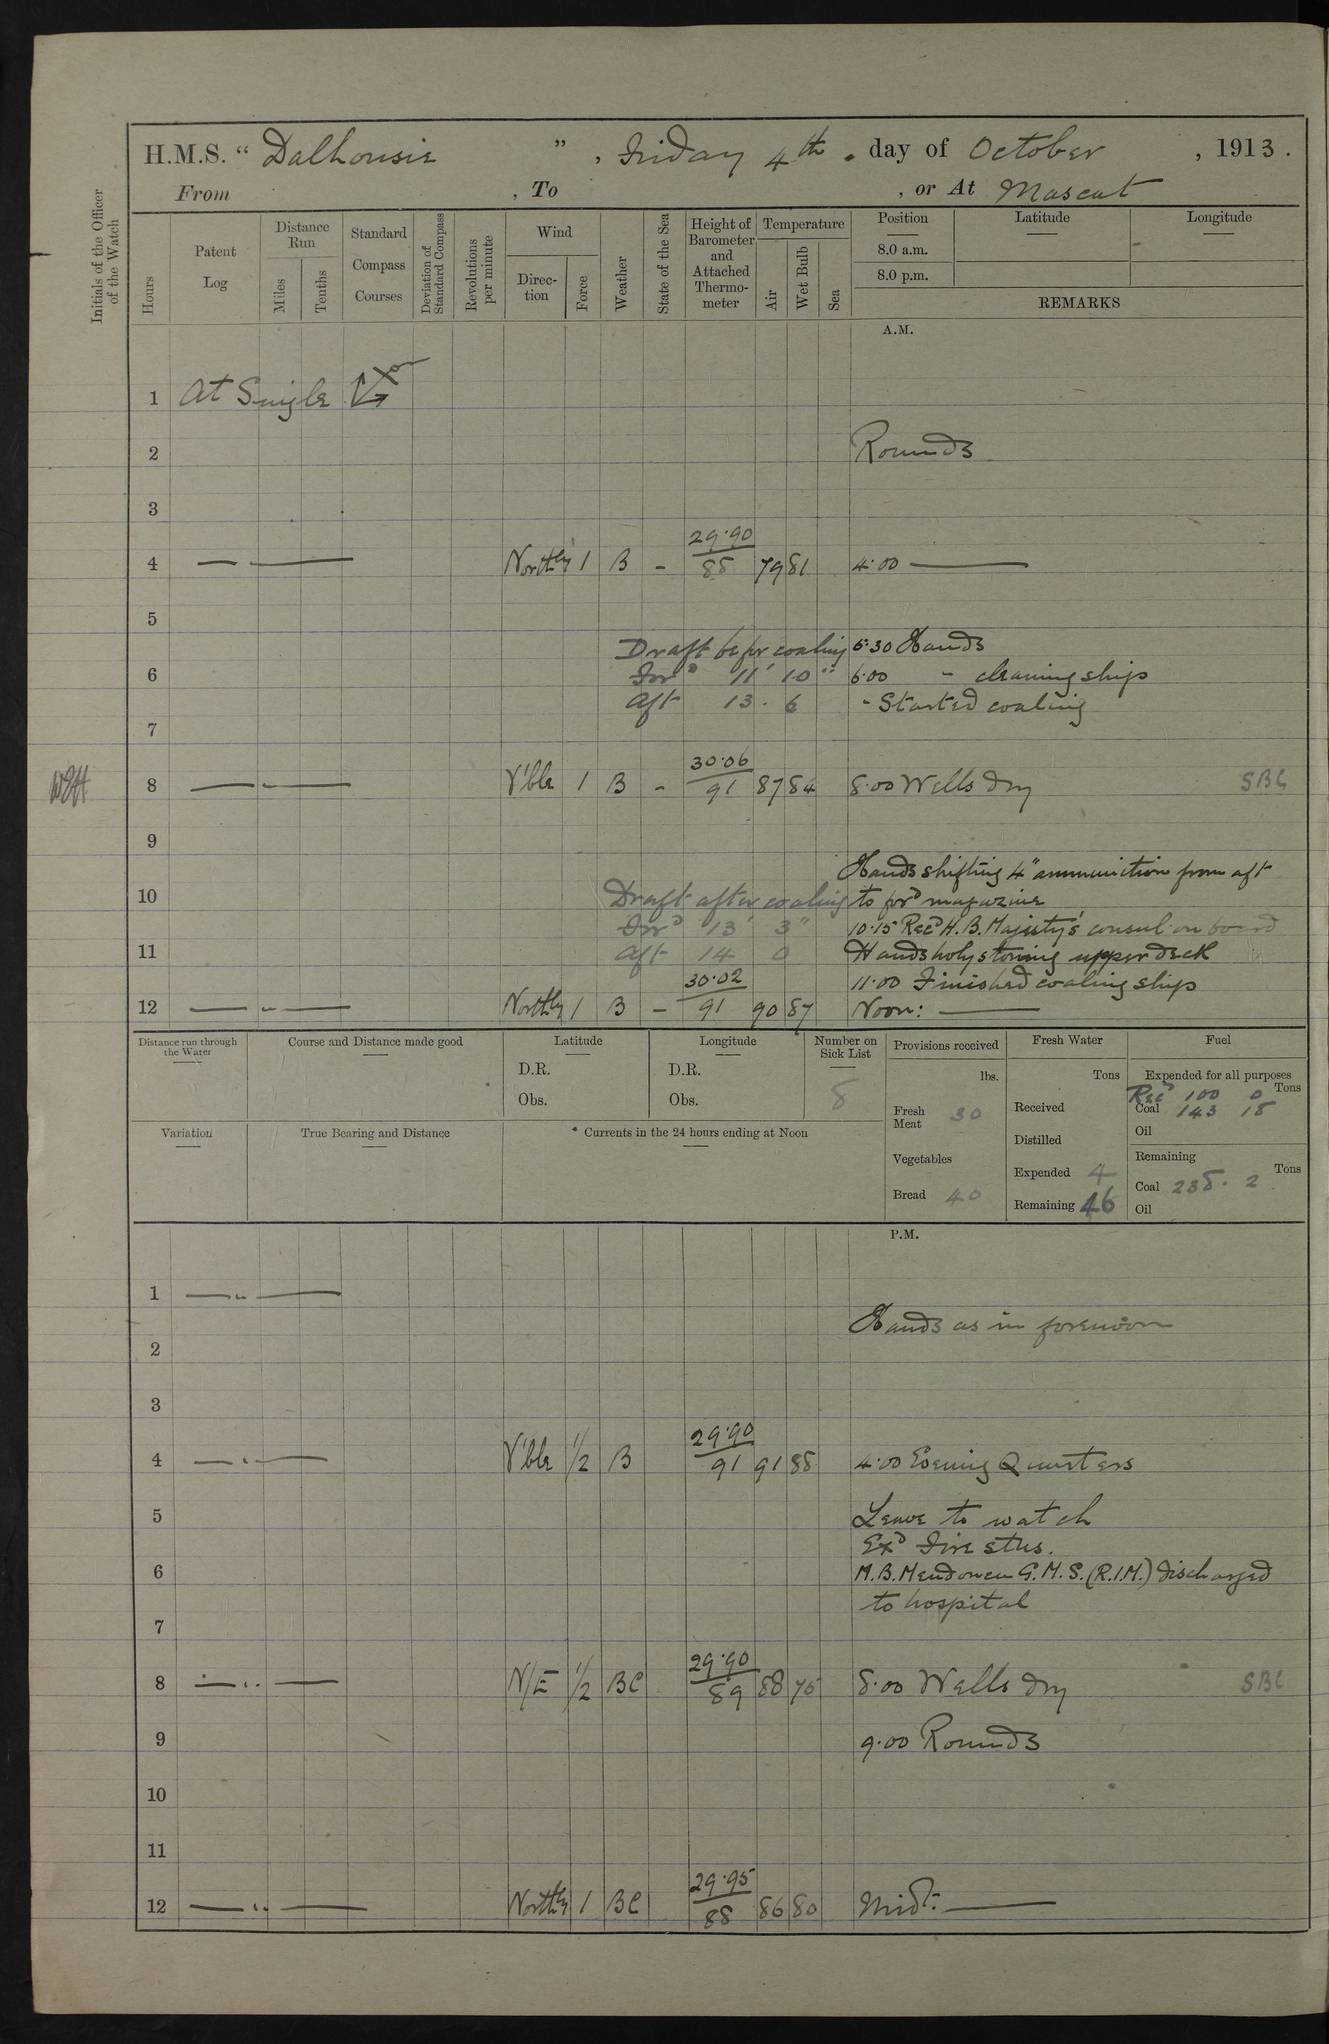 H.M.S. "Dalhousie", Friday 4th. day of October, 1913.
From , To , or At Mascat
Initials of the Officer of the Watch
Hours
Patent Log
Distance Run
Miles
Tenths
Standard Compass Courses
Deviation of Standard Compass
Revolutions per minute
Wind
Direc-tion
Force
Weather
State of the Sea
Height of Barometer and Attached Thermo-meter
Temperature
Air
Wet Bulb
Sea
Position
Latitude
Longitude
8.0 a.m.
8.0 p.m.
REMARKS
A.M.
1 At Single
2 Rounds
3
4 Northly 1 B - 29.90 88 79 81 4.00
5
Draft befor coaling 5.30 Hands
6 For'd 11' 10" 6.00 " cleaning ships
Aft 13. 6 " Started coaling
7
8 V'ble 1 B - 30.06 91 87 84 8.00 Wells dry SBC
9
Hands shifting 4" ammunition from aft
10 Draft after coaling to for'd magazine
For'd 13' 3" 10.15 Rec'd H.B. Majisty's consul on board
11 Aft 14 0 Hands holystoning upper deck
11.00 Finished coaling ship
12 Northly 1 B - 30.02 91 90 87 Noon:
Distance run through the Water
Course and Distance made good
Latitude
D.R.
Obs.
Longitude
D.R.
Obs.
Number on Sick List
8
Provisions received
lbs.
Fresh Meat 30
Vegetables
Bread 40
Fresh Water
Tons
Received
Distilled
Expended 4
Remaining 46
Fuel
Expended for all purposes
Tons
Rec'd 100 0
Coal 143 18
Oil
Remaining
Tons
Coal 238. 2
Oil
Variation
True Bearing and Distance
* Currents in the 24 hours ending at Noon
P.M.
1
Hands as in forenoon
2
3
4 V'ble 1/2 B 29.90 91 91 88 4.00 Evening Quarters
5 Leave to watch
Ex'd Fire stns.
6 M.B. Mendonca G.M.S. (R.I.M.) discharged
to hospital
7
8 N/E 1/2 BC 29.90 89 88 75 8.00 Wells dry SBC
9 9.00 Rounds
10
11
12 Northly 1 BC 29.95 88 86 80 Midt: